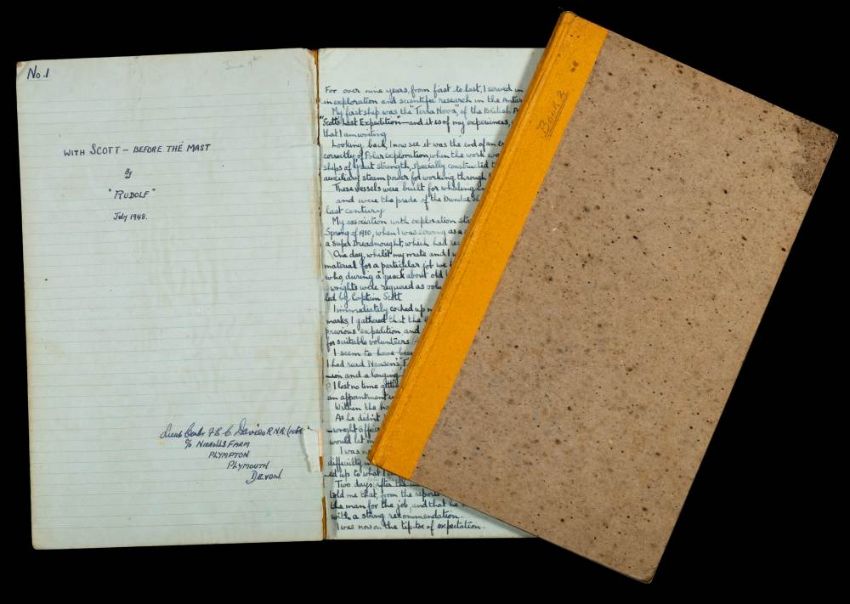 No.1
WITH SCOTT – BEFORE THE MAST
By
"RUDOLF"
July 1948.
Lieut Comdr F.E.C. Davies R.N.
c/o Nicholls Farm
Plympton
Plymouth
Devon
For over nine years, from first to last, I served in
in exploration and scientific research in the Antar
My first ship was the "Terra Nova", of the British A
"Scott's Last Expedition" – and it is of my experiences,
that I am writing.
Looking back, I now see it was the end of an
of Polar exploration, when the work was
ships of great strength, specially constructed
auxiliary steam power for working through
These vessels were built for whaling
and were the pride of the Dundee
last century.
My association with exploration
Spring of 1910, when I was serving as a
a Super Dreadnought, which had
One day, whilst my mate and I
material for a particular job we
who, during a "jaw" about old
wrights were required as
led by Captain Scott
I immediately cocked up
marks, I gathered that the
previous expedition and
for suitable volunteers.
I seem to have been
I had read
and a longing
I lost no time
an appointment
Within the
As he didn't
wright
would let
I was
difficulty
ed up to what I
Two days after the
told me that, from the reports
the man for the job, and that he
with a strong recommendation.
I was now on the tip-toe of expectation.
Book 2